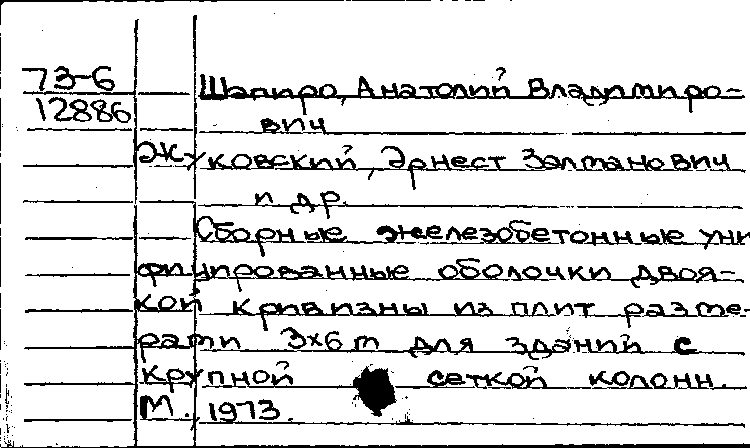 73-6 Шапиро, Анатолий Владимиро-
12886
вич
Жуковский, Эрнест Залманович
и др.
Сборные железобетонные уни
фицированные оболочки двоя-
кой кривизны из плит разме-
рами 3х6 м для зданий с
крупной сеткой колонн.
М., 1973.